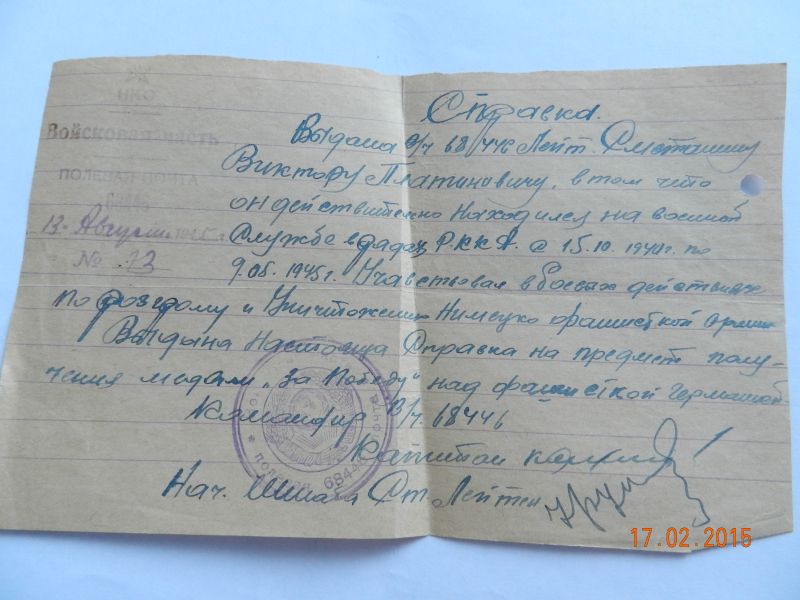 НКО
Войсковая часть
ПОЛЕВАЯ ПОЧТА
13 - Августа
№ 73
Справка.
Выдана в/ч 68446 Лейт. Сметанину
Виктору Платиновичу, в том что
он действительно находился на военной
службе в рядах Р.К.К.А. с 15.10.1940г. по
9.05.1945г. Учавствовал в боевых действиях
по розгрому и уничтожению Нимецко фашисткой Армии
Выдана Настояща Справка на предмет полу-
чения медали „За Победу" над фашисткой Германией
Командир В/ч. 68446
Капитан
Нач. Штаба Ст. Лейтен
ПОЛЕВАЯ
68446
17.02.2015